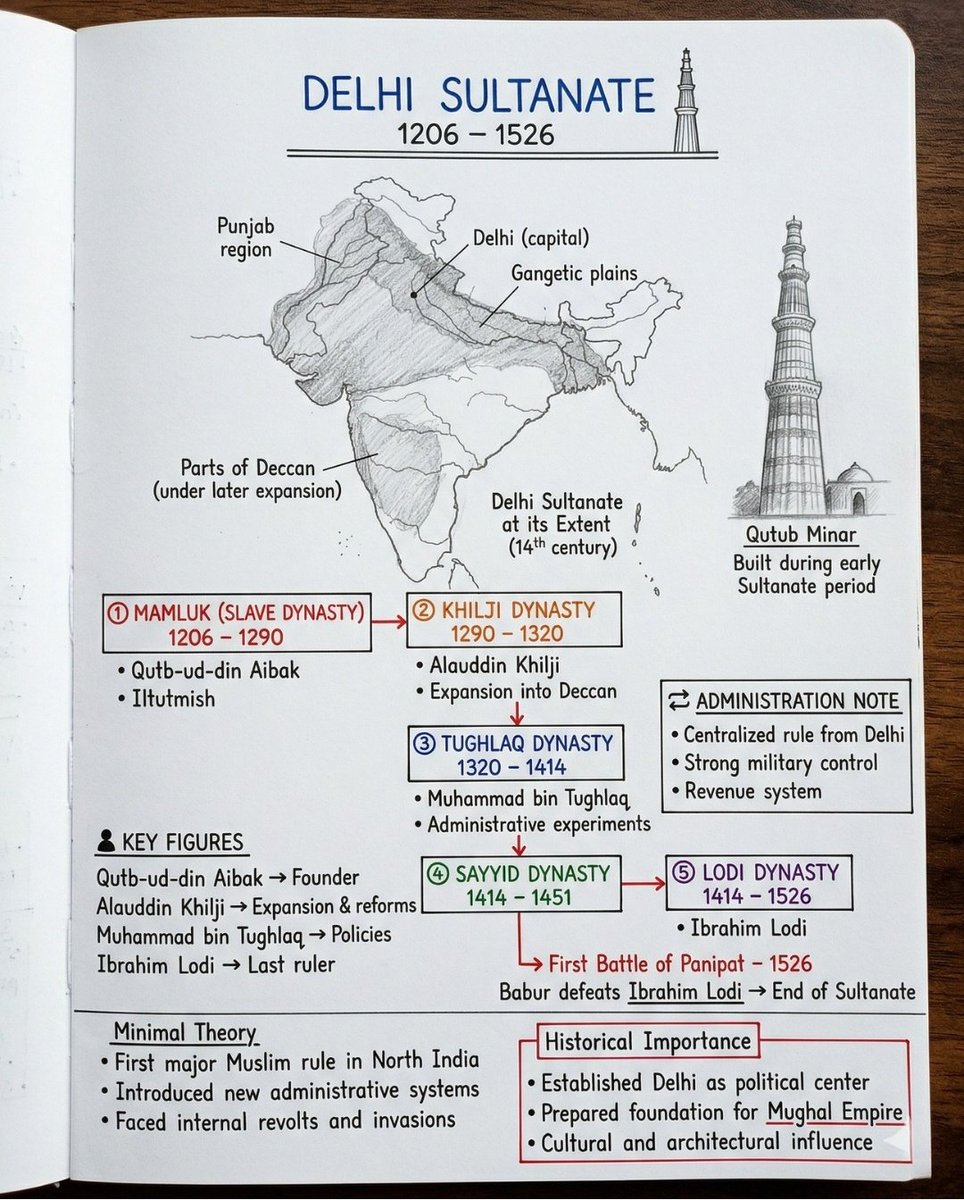 DELHI SULTANATE
1206 – 1526
Punjab
region
Delhi (capital)
Gangetic plains
Parts of Deccan
(under later expansion)
Delhi Sultanate
at its Extent
(14th century)
Qutub Minar
Built during early
Sultanate period
① MAMLUK (SLAVE DYNASTY)
1206 – 1290
• Qutb-ud-din Aibak
• Iltutmish
② KHILJI DYNASTY
1290 – 1320
• Alauddin Khilji
• Expansion into Deccan
③ TUGHLAQ DYNASTY
1320 – 1414
• Muhammad bin Tughlaq
• Administrative experiments
ADMINISTRATION NOTE
• Centralized rule from Delhi
• Strong military control
• Revenue system
④ SAYYID DYNASTY
1414 – 1451
⑤ LODI DYNASTY
1414 – 1526
• Ibrahim Lodi
First Battle of Panipat – 1526
Babur defeats Ibrahim Lodi → End of Sultanate
KEY FIGURES
Qutb-ud-din Aibak → Founder
Alauddin Khilji → Expansion & reforms
Muhammad bin Tughlaq → Policies
Ibrahim Lodi → Last ruler
Minimal Theory
• First major Muslim rule in North India
• Introduced new administrative systems
• Faced internal revolts and invasions
Historical Importance
• Established Delhi as political center
• Prepared foundation for Mughal Empire
• Cultural and architectural influence